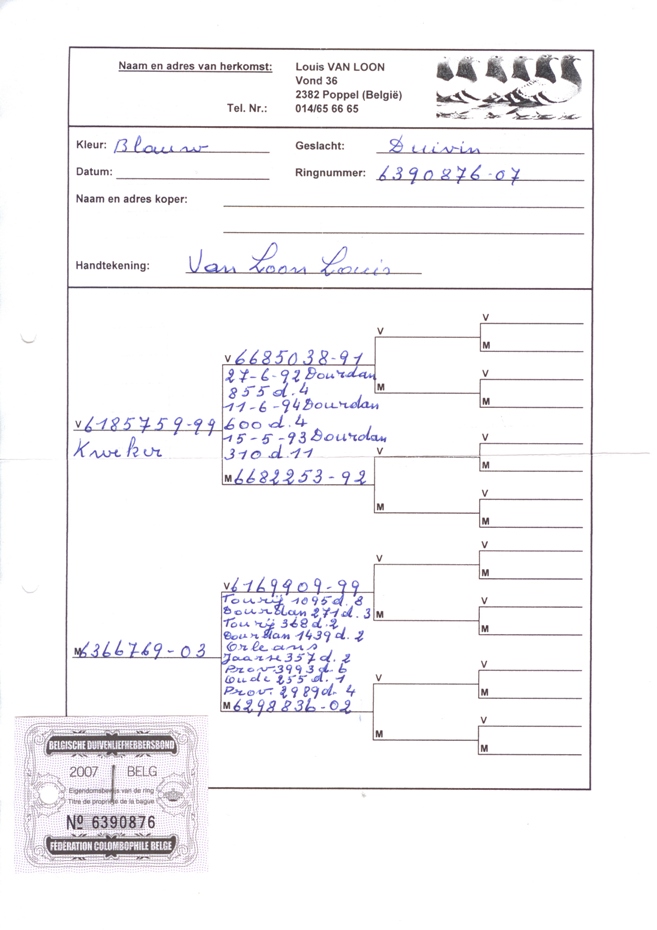 Naam en adres van herkomst: Louis VAN LOON
Vond 36
2382 Poppel (België)
Tel. Nr.: 014/65 66 65
Kleur: Blauw Geslacht: Duivin
Datum: Ringnummer: 6390876-07
Naam en adres koper:
Handtekening: Van Loon Louis
V 6185759-99
Kweker
V 6685038-91
27-6-92 Dourdan
855 d. 4
11-6-94 Dourdan
600 d. 4
15-5-93 Dourdan
310 d. 11
M 6682253-92
V
M
V
M
V
M
V
M
V
M
V
M
M 6366769-03
V 6169909-99
Tourij 1095 d. 8
Dourdan 271 d. 3
Tourij 368 d. 2
Dourdan 1439 d. 2
Orleans
Jaarse 357 d. 2
Prov 3993 d. 6
Oude 255 d. 1
Prov. 2989 d. 4
M 6298836-02
V
M
V
M
V
M
V
M
V
M
V
M
BELGISCHE DUIVENLIEFHEBBERSBOND
2007 BELG
Eigendomsbewijs van de ring
Titre de propriété de la bague
Nº 6390876
FÉDÉRATION COLOMBOPHILE BELGE